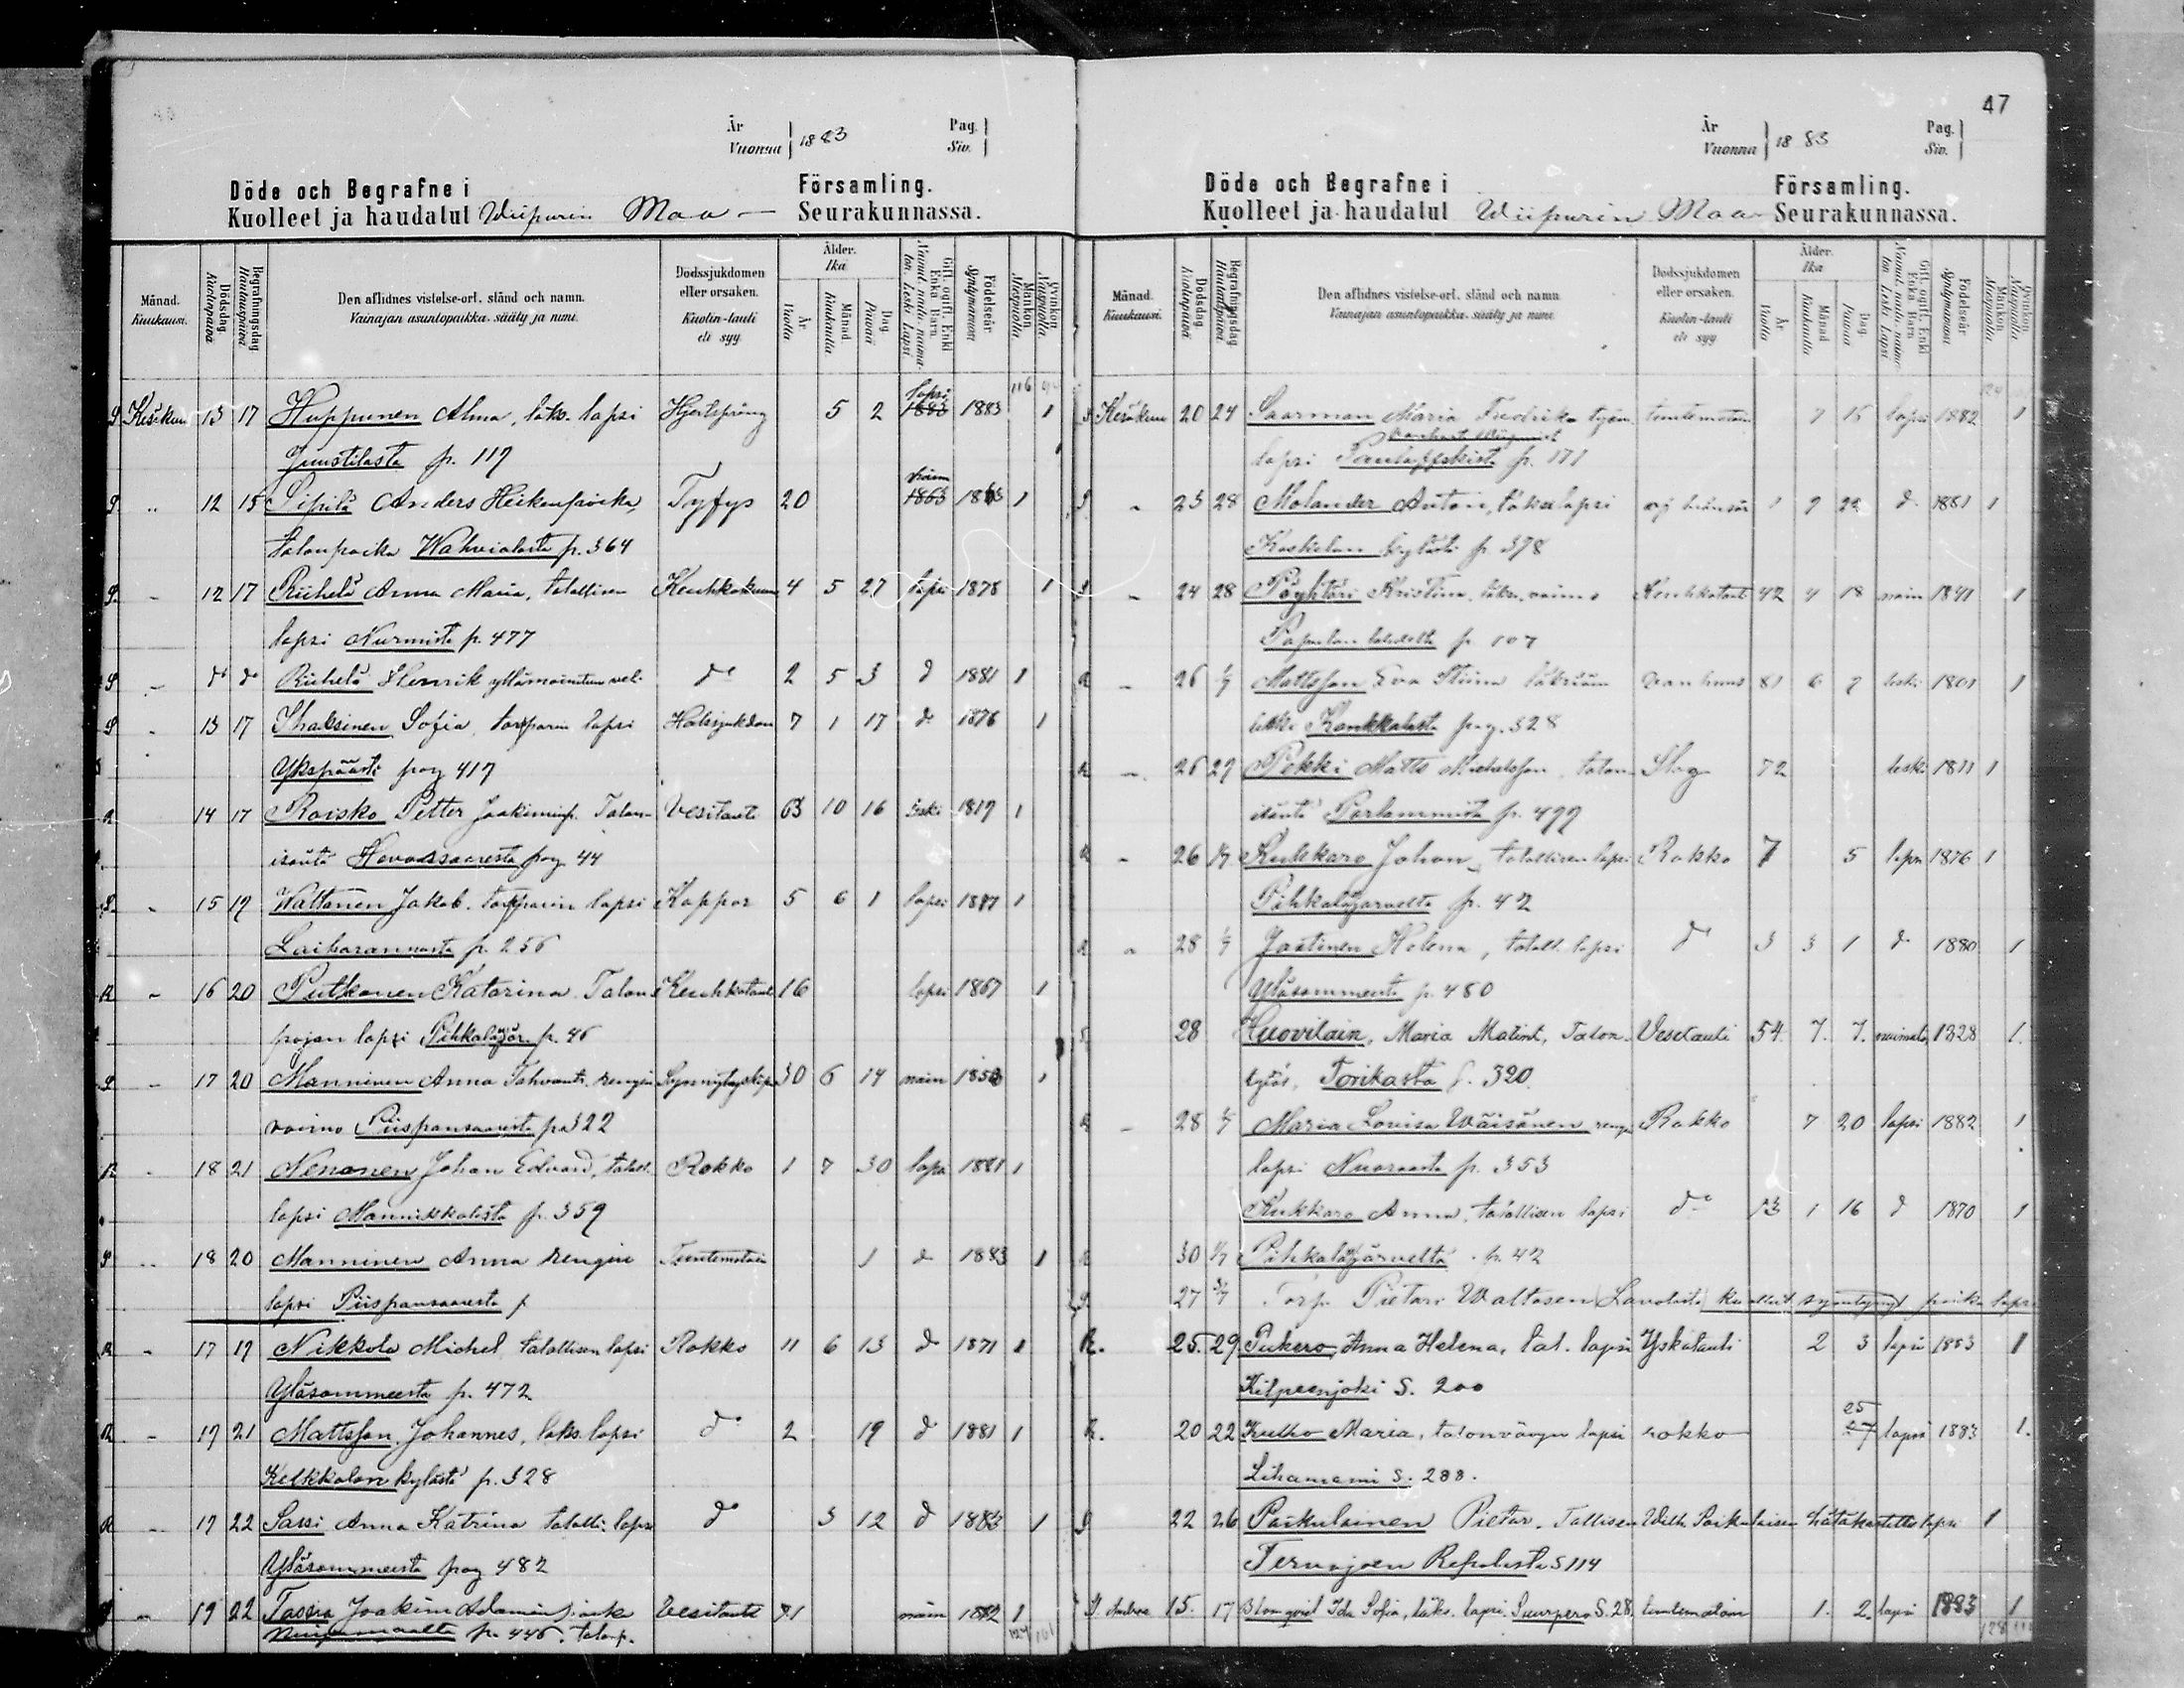 47
År
Vuonna 1883
Pag.
Siv.
Döde och Begrafne i Församling.
Kuolleet ja haudatut Wiipurin Maa- Seurakunnassa.
Månad. Kuukausi.
Dödsdag. Kuolinpäivä
Begrafningsdag Hautauspäivä
Den aflidnes vistelse-ort, stånd och namn.
Vainajan asuntopaikka, sääty ja nimi.
Dödssjukdomen eller orsaken.
Kuolin-tauti eli syy
Ålder. Ikä
År Vuotta
Månad Kuukautta
Dag. Päivää
Gift, ogift, Enkl. Enka Barn.
Födelseår. Syntymävuosi
Mankön. Miespuolia
Qvinkön. Vaispuolia
S Kesäkuu 13 17 Huppunen Alma, läks. lapsi Hjertspräng 5 2 lapsi 1883 1883 1
Juustilasta p. 117
S " 12 15 Sipilä Anders Heikenpoika, Tyfys 20 1863 1863 1
talonpoika Wahvialasta p. 364
S - 12 17 Riihelä Anna Maria, talollisen Keuhkokuume 4 5 27 lapsi 1878 1
lapsi Nurmista p. 477
S - do do Riihelä Henrik yllämainitun veli do 2 5 3 d 1881 1
S - 13 17 Ihalainen Sofia, torpparin lapsi Halssjukdom 7 1 17 d 1876 1
Ykspäästä pag 417
R 14 17 Roisko Petter Joakiminp. Talon- Vesitauti 63 10 16 leski 1819 1
isäntä Hevossaaresta pag 44
S - 15 19 Wattanen Jakob, torpparin lapsi Koppor 5 6 1 lapsi 1877 1
Laiharannasta p. 256
R - 16 20 Putkonen Katarina Talon Keuhkotauti 16 lapsi 1867 1
pojan lapsi Pihkalajär. p. 46
S - 17 20 Manninen Anna Tahvont. rengin 30 6 14 nain 1853 1
vaimo Piispansaaresta p 322
R - 18 21 Nenonen Johan Edvard, talol. Rokko 1 7 30 lapsi 1881 1
lapsi Mannikkalasta p. 359
S - 18 20 Manninen Anna rengin Tuntematoin 1 d 1883 1
lapsi Piispansaaresta p
R - 17 19 Nikkola Michel talollisen lapsi Rokko 11 6 13 d 1871 1
Yläsommeesta p. 472
R - 19 21 Mattsson Johannes, läks. lapsi do 2 19 d 1881 1
Kelkkalan kylästä p. 328
R - 19 22 Sassi Anna Katrina talolli. lapsi do 3 12 d 1883 1
Yläsommeesta pag 482
S - 19 22 Tassia Joakim Adaminpoika Vesitauti 71 näin 1812 1
p. 446. talonp.
År
Vuonna 1883
Pag.
Siv.
Döde och Begrafne i Församling.
Kuolleet ja haudatut Wiipurin Maa- Seurakunnassa.
Månad. Kuukausi.
Dödsdag. Kuolinpäivä
Begrafningsdag Hautauspäivä
Den aflidnes vistelse-ort, stånd och namn.
Vainajan asuntopaikka, sääty ja nimi.
Dödssjukdomen eller orsaken.
Kuolin-tauti eli syy
Ålder. Ikä
År Vuotta
Månad Kuukautta
Dag. Päivää
Gift, ogift, Enkl. Enka Barn.
Födelseår. Syntymävuosi
Mankön. Miespuolia
Qvinkön. Vaispuolia
S Kesäkuu 20 24 Saarman Maria Fredrika työm. tuntematoin 7 15 lapsi 1882 1
lapsi p. 171
S - 23 28 Molander Anton, läks. lapsi 1 9 22 d 1881 1
Koskelan kylästä p 378
S - 24 28 Pöyhtäri Kristina, läks. vaimo Keuhkotauti 42 4 18 nain 1841 1
Papulan p. 107
R - 26 1/7 Mattsson Eva Stiina vanhuus 81 6 7 leski 1801 1
leski Konkkalasta pag. 328
R - 26 29 Pekki Matts Michelsson, talon Slag 72 leski 1811 1
isäntä Porlammista p. 499
R - 26 1/7 Kukkaro Johan, talollisen lapsi Rokko 7 5 lapsi 1876 1
Pihkalajärveltä p. 42
R - 28 1/7 Jaatinen Helena, taloll. lapsi do 3 3 1 d 1880 1
Yläsommeesta p. 480
S 28 Huovilain, Maria Matint, Talon- Vesitauti 54 7. 7. naimato 1828 1.
tytär, Torikasta s. 320.
R - 28 1/7 Maria Lovisa Wäisänen rengin Rokko 7 20 lapsi 1882 1
lapsi Nuoraasta p. 353
Kukkaro Anna, talollisen lapsi do 13 1 16 d 1870 1
30 1/7 Pihkalajärveltä p. 42
S. 27 Torp. Pietari Waltosen Lavolasta kuolleena syntynyt poika lapsi
R. 25. 29 Pukero, Anna Helena, tal. lapsi Yskätauti 2 3 lapsi 1883 1
Kilpeenjoki S. 200
R. 20 22 Kulho Maria, talonvävyn lapsi rokko 25 27 lapsi 1883 1.
Lihaniemi S. 288.
S 22 26 Paikulainen Pietar. Tallisen Wilh. Paikulaisen hätäkastettu lapsi 1
Tervajoen Repolasta S 114
S. 15. 17 Blomqvist Ida Sofia, läks. lapsi. Suurpero S. 28. tuntematoin 1. 2. lapsi 1883 1